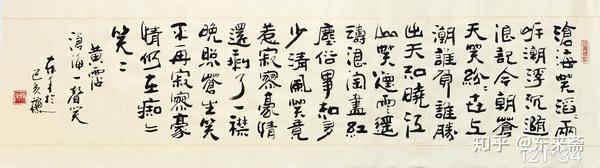 滄海笑滔〻兩
岸潮浮沉隨
浪記今朝蒼
天笑紛〻世上
潮誰負誰勝
出天知曉江
山笑煙雨遥
濤浪淘盡紅
塵俗事知多
少清風笑竟
惹寂寥豪情
還剩了一襟
晚照蒼生笑
不再寂寥豪
情仍在痴〻
笑〻
黄霑
滄海一聲笑
於
己亥
知乎 @东来斋
121*34